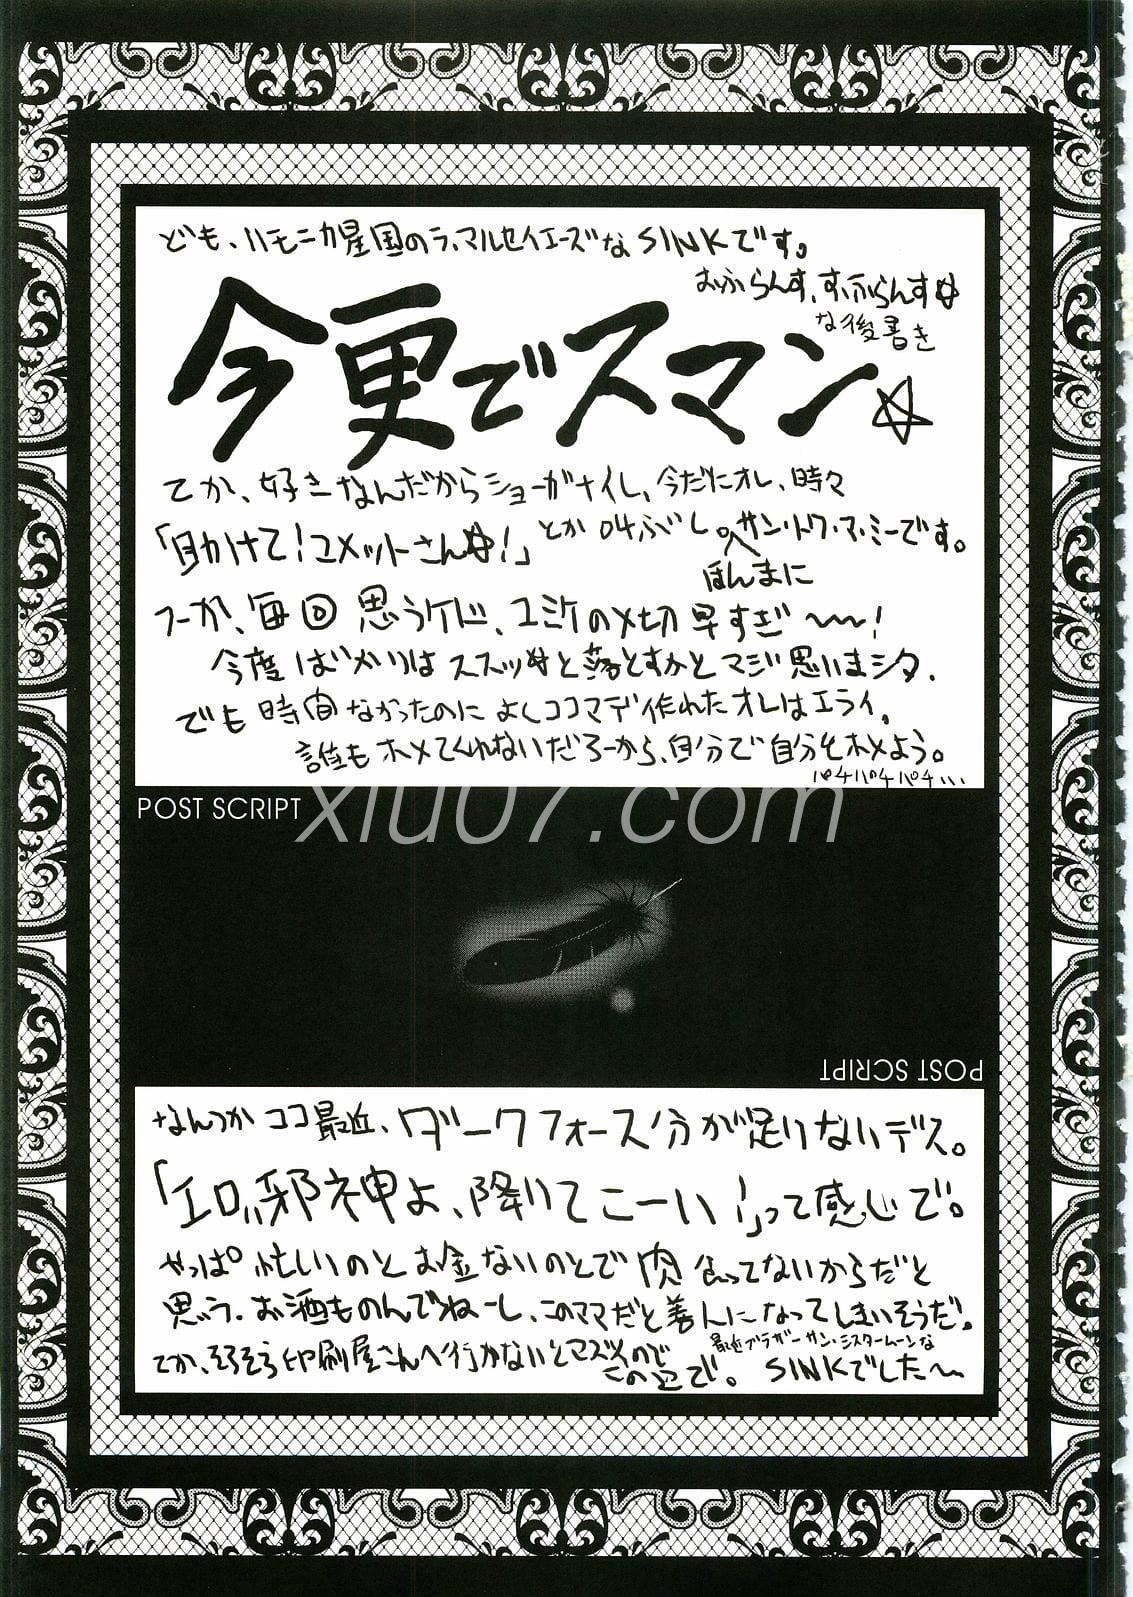 ども、ハモニカ星国のラ・マルセイエーズなSINKです。
おふらんす、すふらんす☆
な後書き
今更でスマン☆
てか、好きなんだからショーガナイし、今だにオレ、時々
「助けて！コメットさん☆！」とか叫ぶし。サン・トワ・マ・ミーです。
ほんまに
つーか、毎回思うケド、コミケの〆切早すぎ〜〜！
今度ばかりはススッ☆と落とすかとマジ思いまシタ。
でも時間なかったのによくココマデ作れたオレはエライ。
誰もホメてくれないだろーから、自分で自分をホメよう。
パチパチパチ…
POST SCRIPT
xiu07.com
POST SCRIPT
なんつかココ最近、ダークフォース分が足りないデス。
「エロい邪神よ、降りてこーい！」って感じで。
やっぱ忙しいのとお金ないのとで肉食ってないからだと
思う。お酒ものんでねーし、このママだと善人になってしまいそうだ。
てか、そろそろ印刷屋さんへ行かないとマズメので
この辺で。
最近ブラザー・サン・シスタームーンな
SINKでした〜